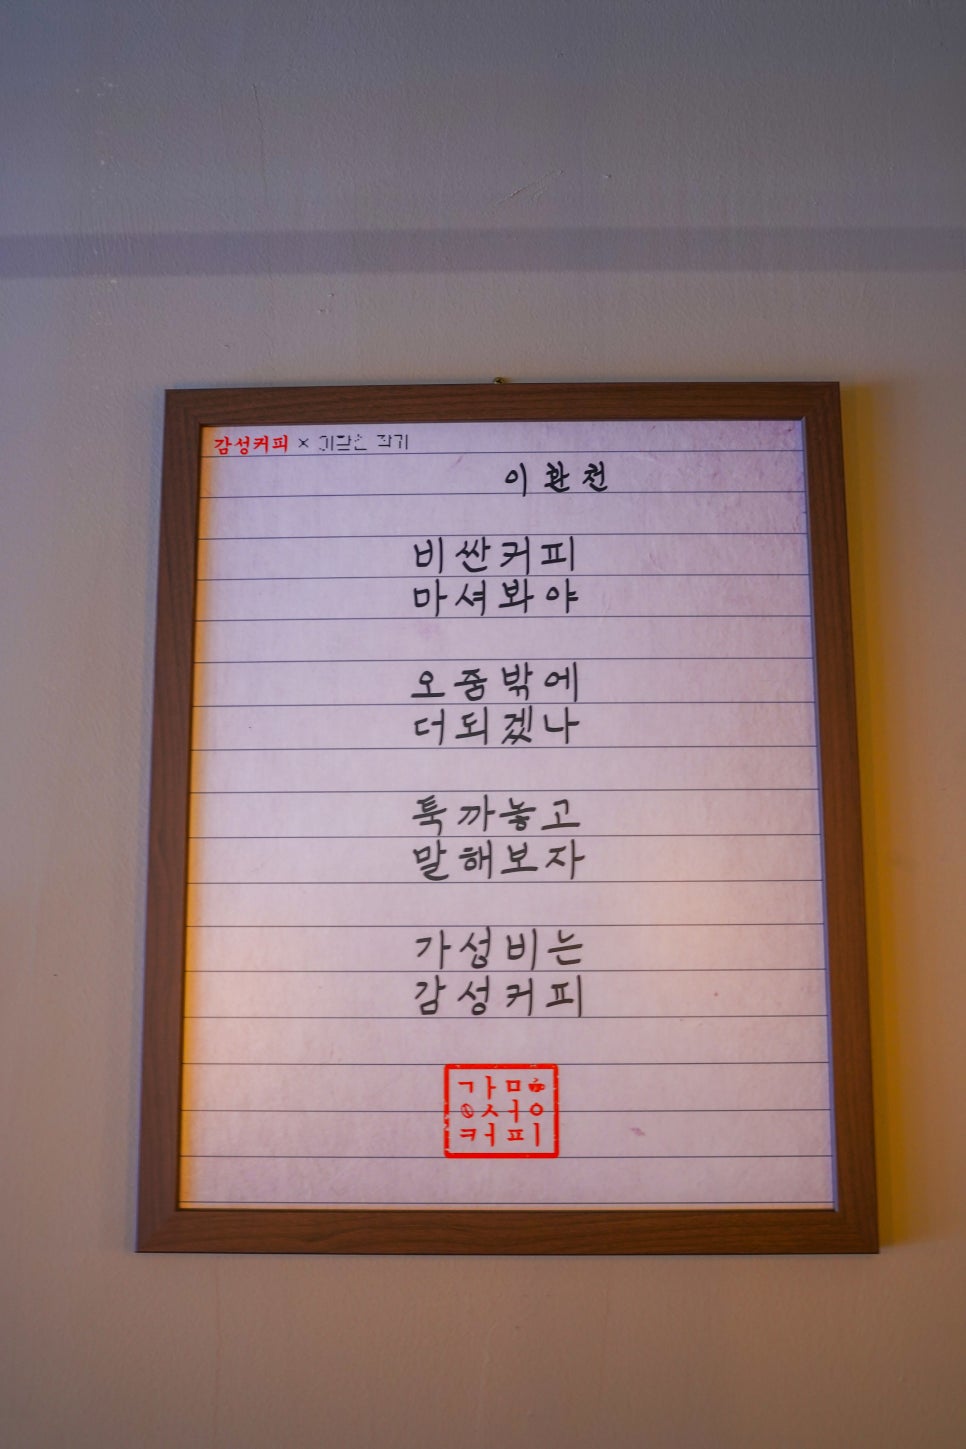 감성커피 × 이환천 작가
이환천
비싼커피
마셔봐야
오줌밖에
더되겠나
툭까놓고
말해보자
가성비는
감성커피
ㄱㅏㅁ
ㅅㅓㅇ
ㅋㅓㅍㅣ